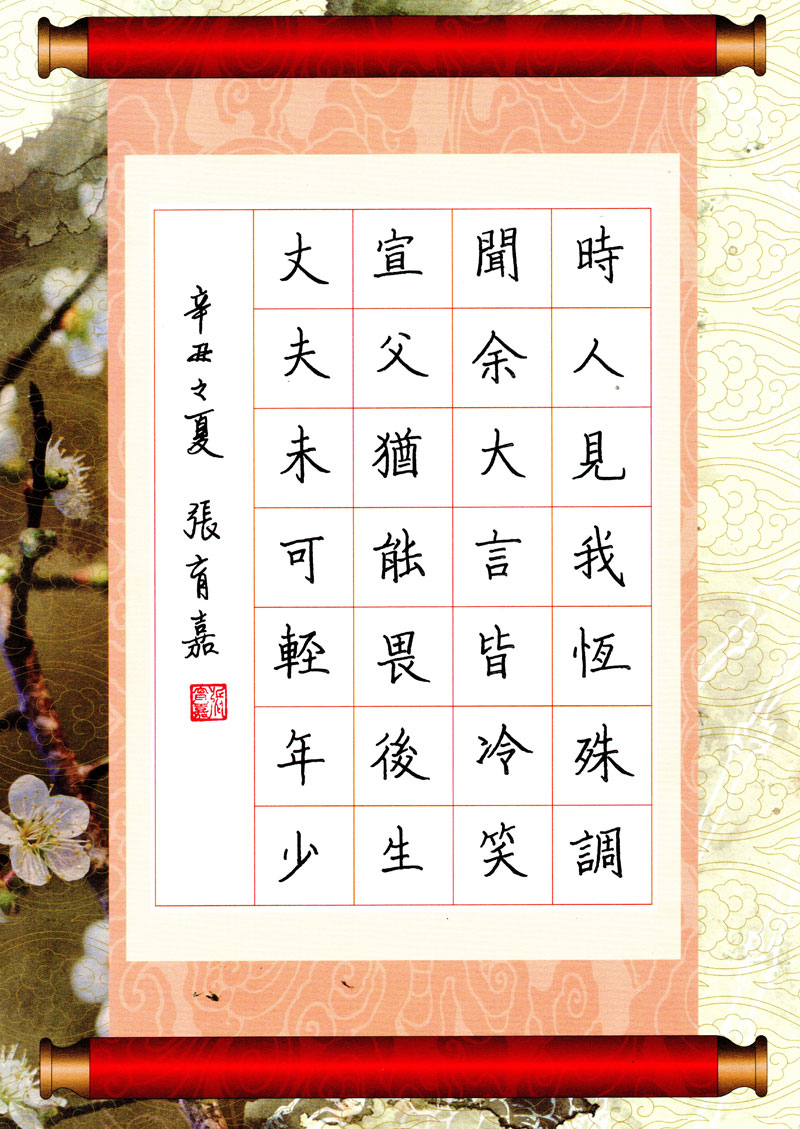 時人見我恆殊調
聞余大言皆冷笑
宣父猶能畏後生
丈夫未可輕年少
辛丑之夏 張育嘉
張育嘉